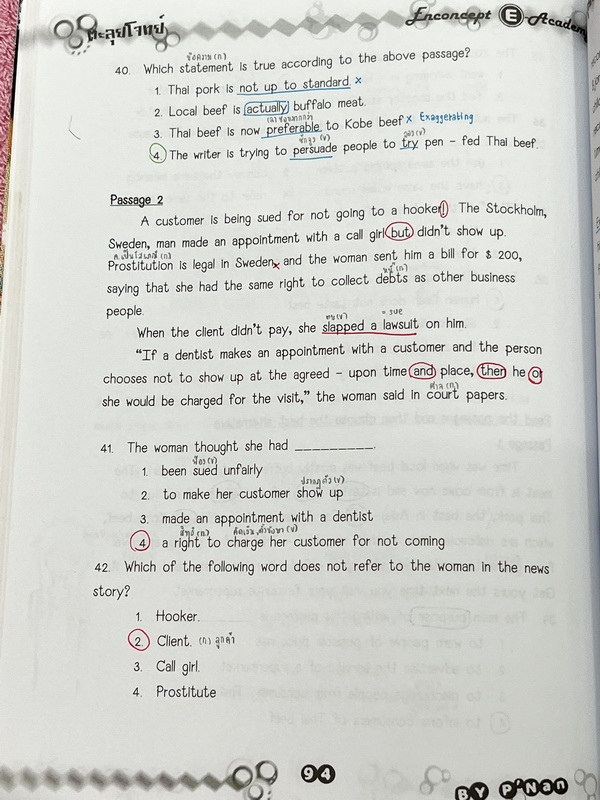 ตะลุยโจทย์
Enconcept E-Academy
ข้อความ (n)
40. Which statement is true according to the above passage?
1. Thai pork is not up to standard. x
2. Local beef is actually buffalo meat.
(a) ชอบมากกว่า
3. Thai beef is now preferable to Kobe beef x Exaggerating
ชักจูง (v) ลอง (v)
4. The writer is trying to persuade people to try pen - fed Thai beef.
Passage 2
A customer is being sued for not going to a hooker! The Stockholm,
Sweden, man made an appointment with a call girl but didn't show up.
ค.เป็นโสเภณี (n)
Prostitution is legal in Sweden, and the woman sent him a bill for $ 200,
หนี้ (n)
saying that she had the same right to collect debts as other business
people.
ตบ (v) = sue
When the client didn't pay, she slapped a lawsuit on him.
"If a dentist makes an appointment with a customer and the person
chooses not to show up at the agreed - upon time and place, then he or
ศาล (n)
she would be charged for the visit," the woman said in court papers.
41. The woman thought she had __________.
ฟ้อง (v)
1. been sued unfairly
ปรากฏตัว (v)
2. to make her customer show up
3. made an appointment with a dentist
สิทธิ์ (n) คิดเงิน, ตั้งข้อหา (v)
4 a right to charge her customer for not coming
42. Which of the following word does not refer to the woman in the news
story?
1. Hooker.
2. Client. (n) ลูกค้า
3. Call girl.
4. Prostitute
94
BY P'Nan